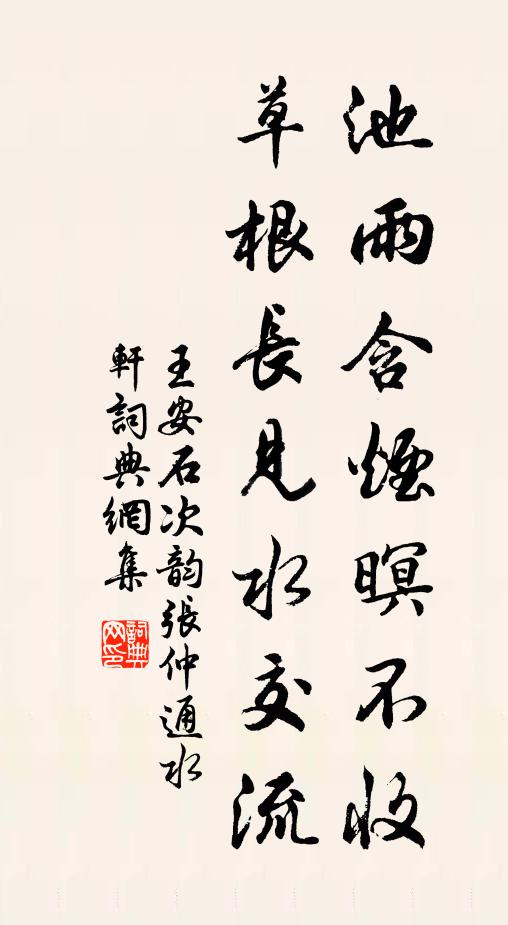 池雨含煙暝不收
草根長見水交流
王安石次韵張仲通水
軒詞典網集
詞典网印